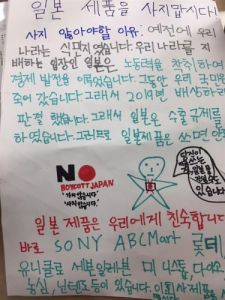 일본 제품을 사지맙시다!
사지 않아야할 이유. 예전에 우리
나라는 식민지였습니다. 우리나라를 지
배하는 입장인 일본은 노동력을 착취하여
경제 발전을 이뤘었습니다. 그동안 우리 국민은
죽어 갔습니다. 그래서 2019년 배상하라
판결 했습니다. 그래서 일본은 수출규제를
하였습니다. 그러므로 일본제품은 쓰면 안
NO
BOYCOTT JAPAN
가지 않습니다
사지 않습니다
있습니다
일본 제품은 우리에게 친숙합니다
바로 SONY ABCMart 롯데
유니클로 세븐일레븐 미니스톱, 다이소
농심, 닌텐도 등이 있습니다. 이 회사제품